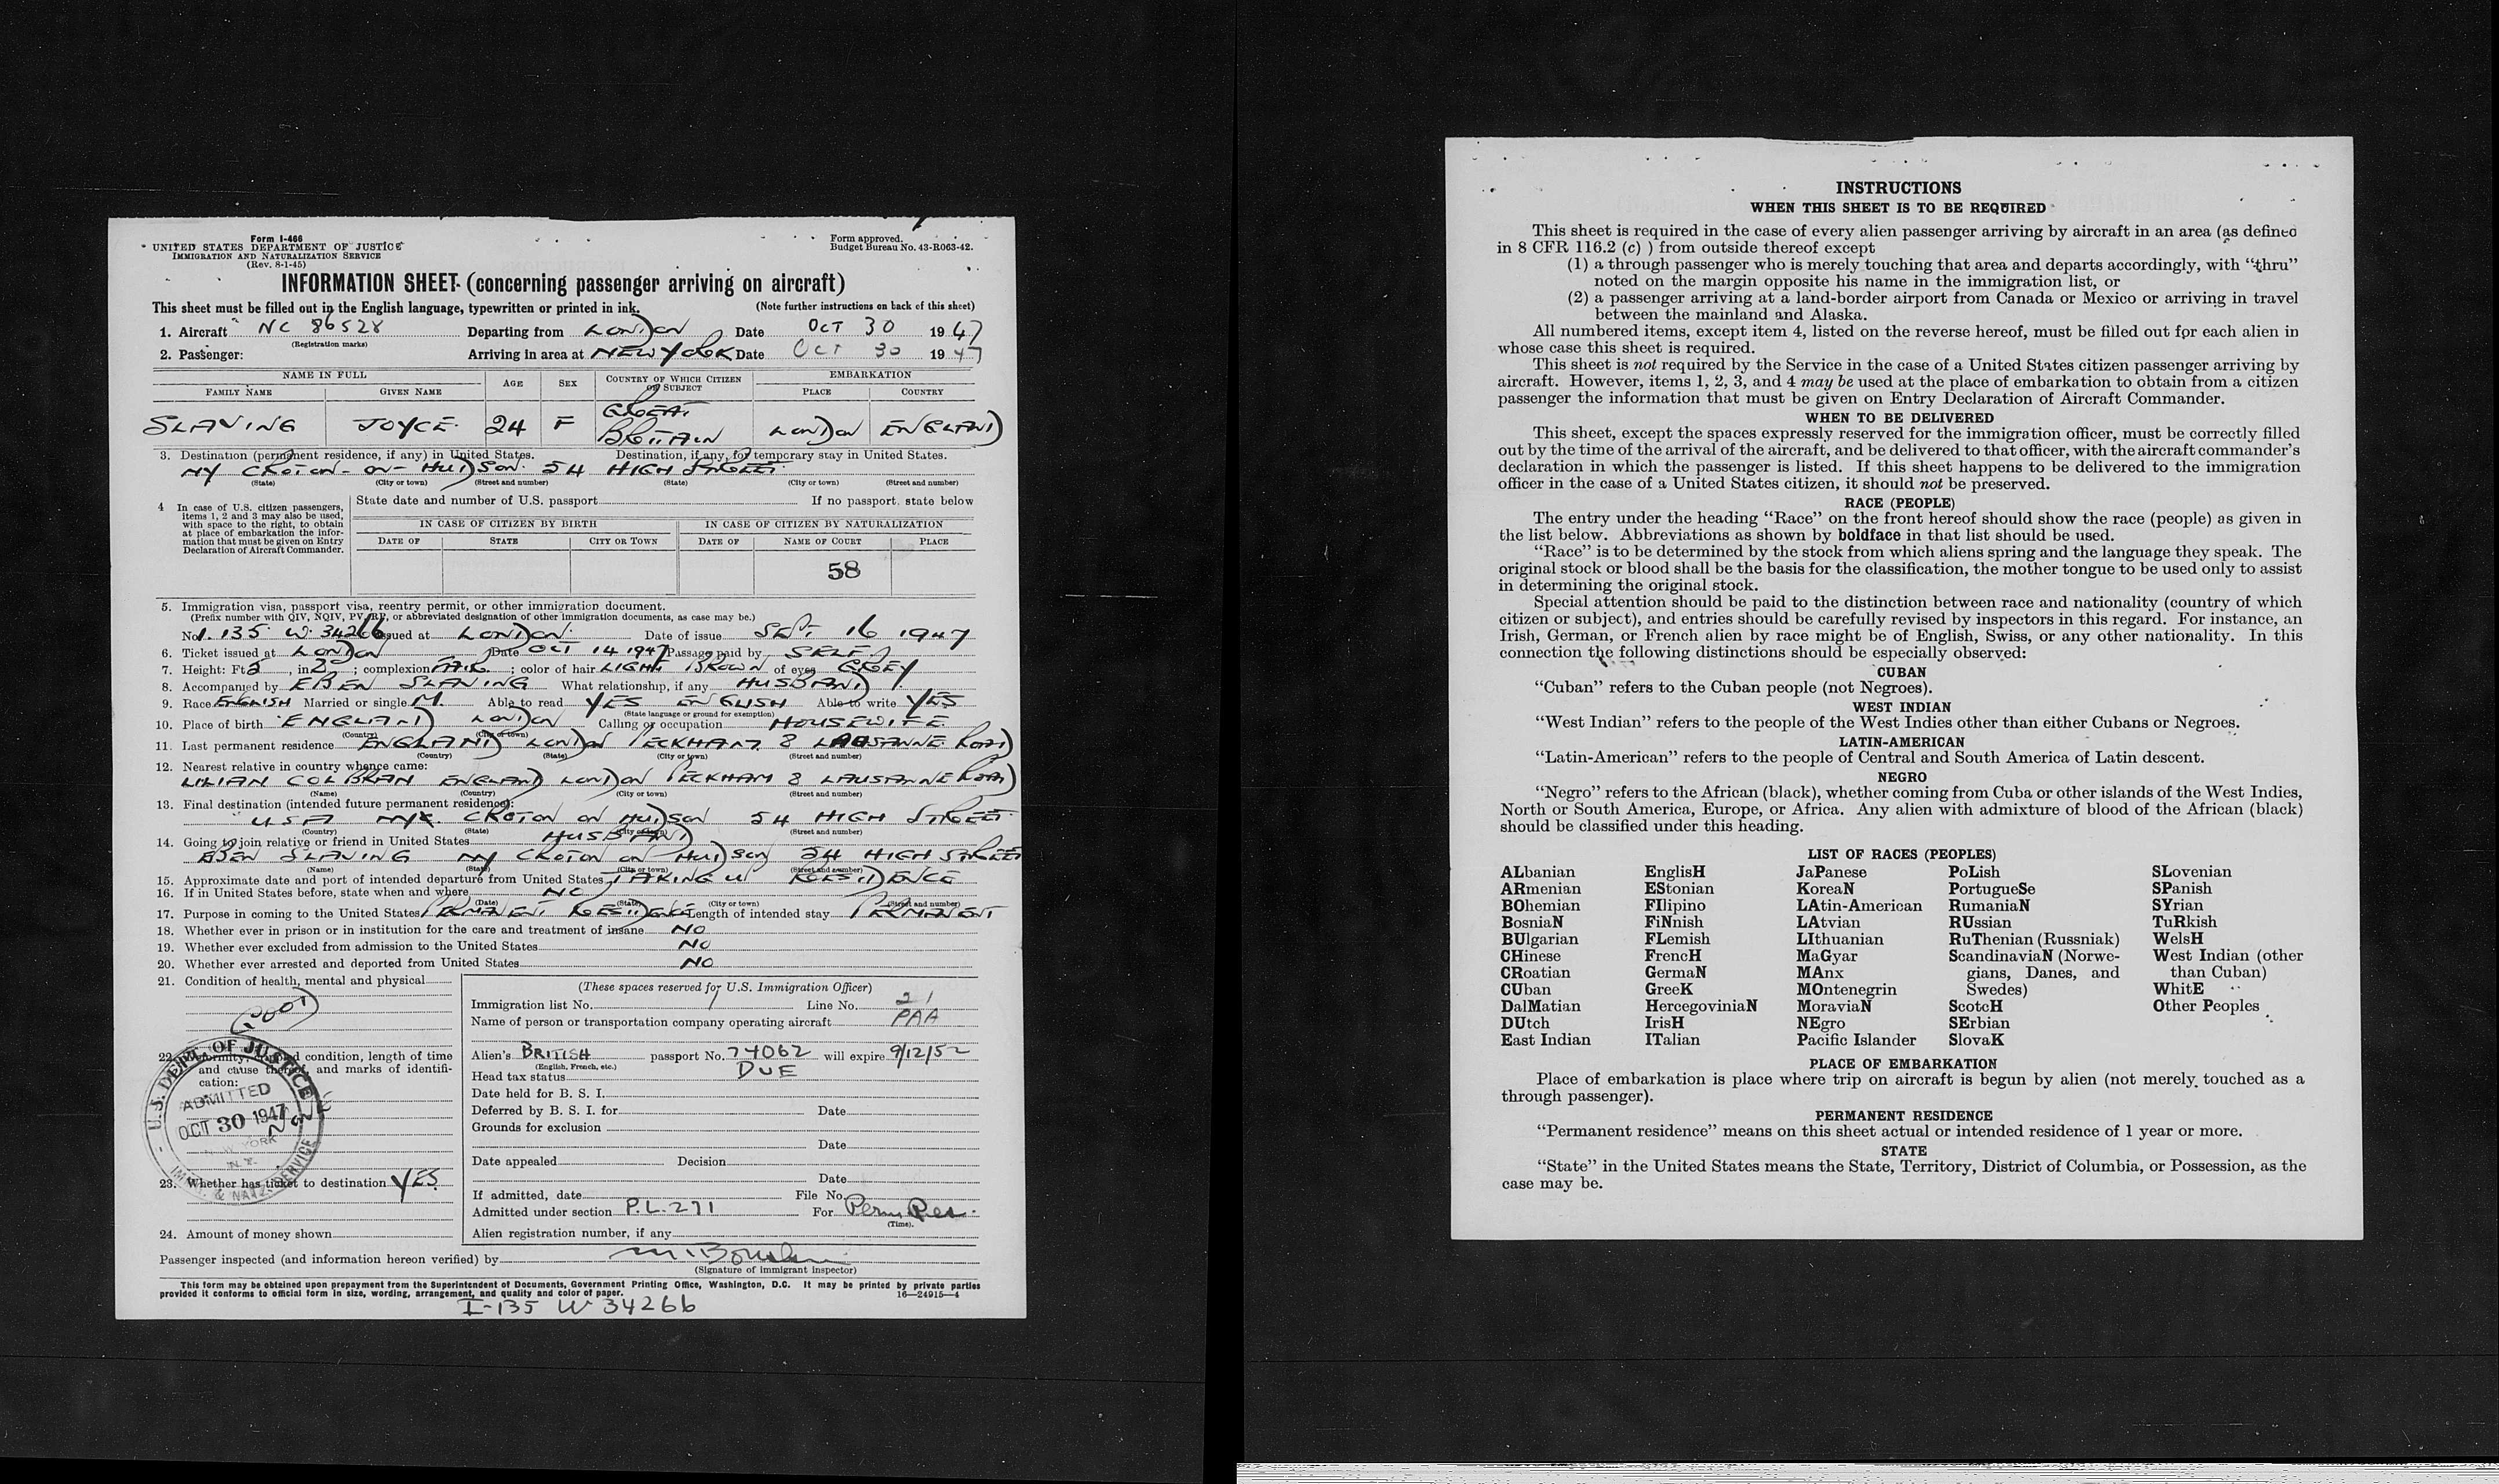 Form I-466
UNITED STATES DEPARTMENT OF JUSTICE
IMMIGRATION AND NATURALIZATION SERVICE
(Rev. 8-1-45)
Form approved.
Budget Bureau No. 43-R063-42.
INFORMATION SHEET (concerning passenger arriving on aircraft)
This sheet must be filled out in the English language, typewritten or printed in ink. (Note further instructions on back of this sheet)
1. Aircraft NC 86528 Departing from LONDON Date OCT 30 1947
(Registration marks)
2. Passenger: Arriving in area at NEW YORK Date OCT 30 1947
NAME IN FULL AGE SEX COUNTRY OF WHICH CITIZEN OR SUBJECT EMBARKATION
FAMILY NAME GIVEN NAME PLACE COUNTRY
SLAVING JOYCE 24 F GREAT BRITAIN LONDON ENGLAND
3. Destination (permanent residence, if any) in United States. Destination, if any, for temporary stay in United States.
NY CROTON-ON-HUDSON 54 HIGH STREET
(State) (City or town) (Street and number) (State) (City or town) (Street and number)
4 In case of U.S. citizen passengers, items 1, 2 and 3 may also be used, with space to the right, to obtain at place of embarkation the information that must be given on Entry Declaration of Aircraft Commander.
State date and number of U.S. passport If no passport state below
IN CASE OF CITIZEN BY BIRTH IN CASE OF CITIZEN BY NATURALIZATION
DATE OF STATE CITY OR TOWN DATE OF NAME OF COURT PLACE
58
5. Immigration visa, passport visa, reentry permit, or other immigration document.
(Prefix number with QIV, NQIV, PV, RP, or abbreviated designation of other immigration documents, as case may be.)
No. I. 135 W. 34266 issued at LONDON Date of issue SEPT 16 1947
6. Ticket issued at LONDON Date OCT 14 1947 Passage paid by SELF
7. Height: Ft. , in. 2 ; complexion FAIR ; color of hair LIGHT BROWN of eyes GREY
8. Accompanied by EBEN SLAVING What relationship, if any HUSBAND
9. Race ENGLISH Married or single M. Able to read YES ENGLISH Able to write YES
(State language or ground for exemption)
10. Place of birth ENGLAND LONDON Calling or occupation HOUSEWIFE
(Country) (City or town)
11. Last permanent residence ENGLAND LONDON PECKHAM 8 LAUSANNE ROAD
(Country) (State) (City or town) (Street and number)
12. Nearest relative in country whence came:
LILIAN COLBRAN ENGLAND LONDON PECKHAM 8 LAUSANNE ROAD
(Name) (Country) (City or town) (Street and number)
13. Final destination (intended future permanent residence):
USA NY. CROTON ON HUDSON 54 HIGH STREET
(Country) (State) (City or town) (Street and number)
14. Going to join relative or friend in United States HUSBAND
EBEN SLAVING NY CROTON ON HUDSON 54 HIGH STREET
(Name) (State) (City or town) (Street and number)
15. Approximate date and port of intended departure from United States TAKING U RESIDENCE
16. If in United States before, state when and where NO
(Date) (State) (City or town) (Street and number)
17. Purpose in coming to the United States PERMANENT RESIDENCE Length of intended stay PERMANENT
18. Whether ever in prison or in institution for the care and treatment of insane NO
19. Whether ever excluded from admission to the United States NO
20. Whether ever arrested and deported from United States NO
21. Condition of health, mental and physical
GOOD
22. Deformity, crippled condition, length of time and cause thereof, and marks of identification:
U.S. DEPT. OF JUSTICE
ADMITTED
OCT 30 1947
NEW YORK
N.Y.
IMM. & NATZ. SERVICE
23. Whether has ticket to destination YES
24. Amount of money shown
(These spaces reserved for U.S. Immigration Officer)
Immigration list No. 1 Line No. 21
Name of person or transportation company operating aircraft PAA
Alien's BRITISH passport No. 74062 will expire 9/12/52
(English, French, etc.)
Head tax status DUE
Date held for B. S. I.
Deferred by B. S. I. for Date
Grounds for exclusion
Date
Date appealed Decision
Date
If admitted, date File No.
Admitted under section P.L. 271 For Perm Res.
(Time)
Alien registration number, if any
Passenger inspected (and information hereon verified) by
(Signature of immigrant inspector)
This form may be obtained upon prepayment from the Superintendent of Documents, Government Printing Office, Washington, D.C. It may be printed by private parties
provided it conforms to official form in size, wording, arrangement, and quality and color of paper. 16—24915—4
I-135 W 34266
INSTRUCTIONS
WHEN THIS SHEET IS TO BE REQUIRED
This sheet is required in the case of every alien passenger arriving by aircraft in an area (as defined
in 8 CFR 116.2 (c) ) from outside thereof except
(1) a through passenger who is merely touching that area and departs accordingly, with "thru"
noted on the margin opposite his name in the immigration list, or
(2) a passenger arriving at a land-border airport from Canada or Mexico or arriving in travel
between the mainland and Alaska.
All numbered items, except item 4, listed on the reverse hereof, must be filled out for each alien in
whose case this sheet is required.
This sheet is not required by the Service in the case of a United States citizen passenger arriving by
aircraft. However, items 1, 2, 3, and 4 may be used at the place of embarkation to obtain from a citizen
passenger the information that must be given on Entry Declaration of Aircraft Commander.
WHEN TO BE DELIVERED
This sheet, except the spaces expressly reserved for the immigration officer, must be correctly filled
out by the time of the arrival of the aircraft, and be delivered to that officer, with the aircraft commander's
declaration in which the passenger is listed. If this sheet happens to be delivered to the immigration
officer in the case of a United States citizen, it should not be preserved.
RACE (PEOPLE)
The entry under the heading "Race" on the front hereof should show the race (people) as given in
the list below. Abbreviations as shown by boldface in that list should be used.
"Race" is to be determined by the stock from which aliens spring and the language they speak. The
original stock or blood shall be the basis for the classification, the mother tongue to be used only to assist
in determining the original stock.
Special attention should be paid to the distinction between race and nationality (country of which
citizen or subject), and entries should be carefully revised by inspectors in this regard. For instance, an
Irish, German, or French alien by race might be of English, Swiss, or any other nationality. In this
connection the following distinctions should be especially observed:
CUBAN
"Cuban" refers to the Cuban people (not Negroes).
WEST INDIAN
"West Indian" refers to the people of the West Indies other than either Cubans or Negroes.
LATIN-AMERICAN
"Latin-American" refers to the people of Central and South America of Latin descent.
NEGRO
"Negro" refers to the African (black), whether coming from Cuba or other islands of the West Indies,
North or South America, Europe, or Africa. Any alien with admixture of blood of the African (black)
should be classified under this heading.
LIST OF RACES (PEOPLES)
ALbanian EnglisH JaPanese PoLish SLovenian
ARmenian EStonian KoreaN PortugueSe SPanish
BOhemian FIlipino LAtin-American RumaniaN SYrian
BosniaN FiNnish LAtvian RUssian TuRkish
BUlgarian FLemish LIthuanian RuThenian (Russniak) WelsH
CHinese FrencH MaGyar ScandinaviaN (Norwe- West Indian (other
CRoatian GermaN MAnx gians, Danes, and than Cuban)
CUban GreeK MOntenegrin Swedes) WhitE
DalMatian HercegoviniaN MoraviaN ScotcH Other Peoples
DUtch IrisH NEgro SErbian
East Indian ITalian Pacific Islander SlovaK
PLACE OF EMBARKATION
Place of embarkation is place where trip on aircraft is begun by alien (not merely touched as a
through passenger).
PERMANENT RESIDENCE
"Permanent residence" means on this sheet actual or intended residence of 1 year or more.
STATE
"State" in the United States means the State, Territory, District of Columbia, or Possession, as the
case may be.